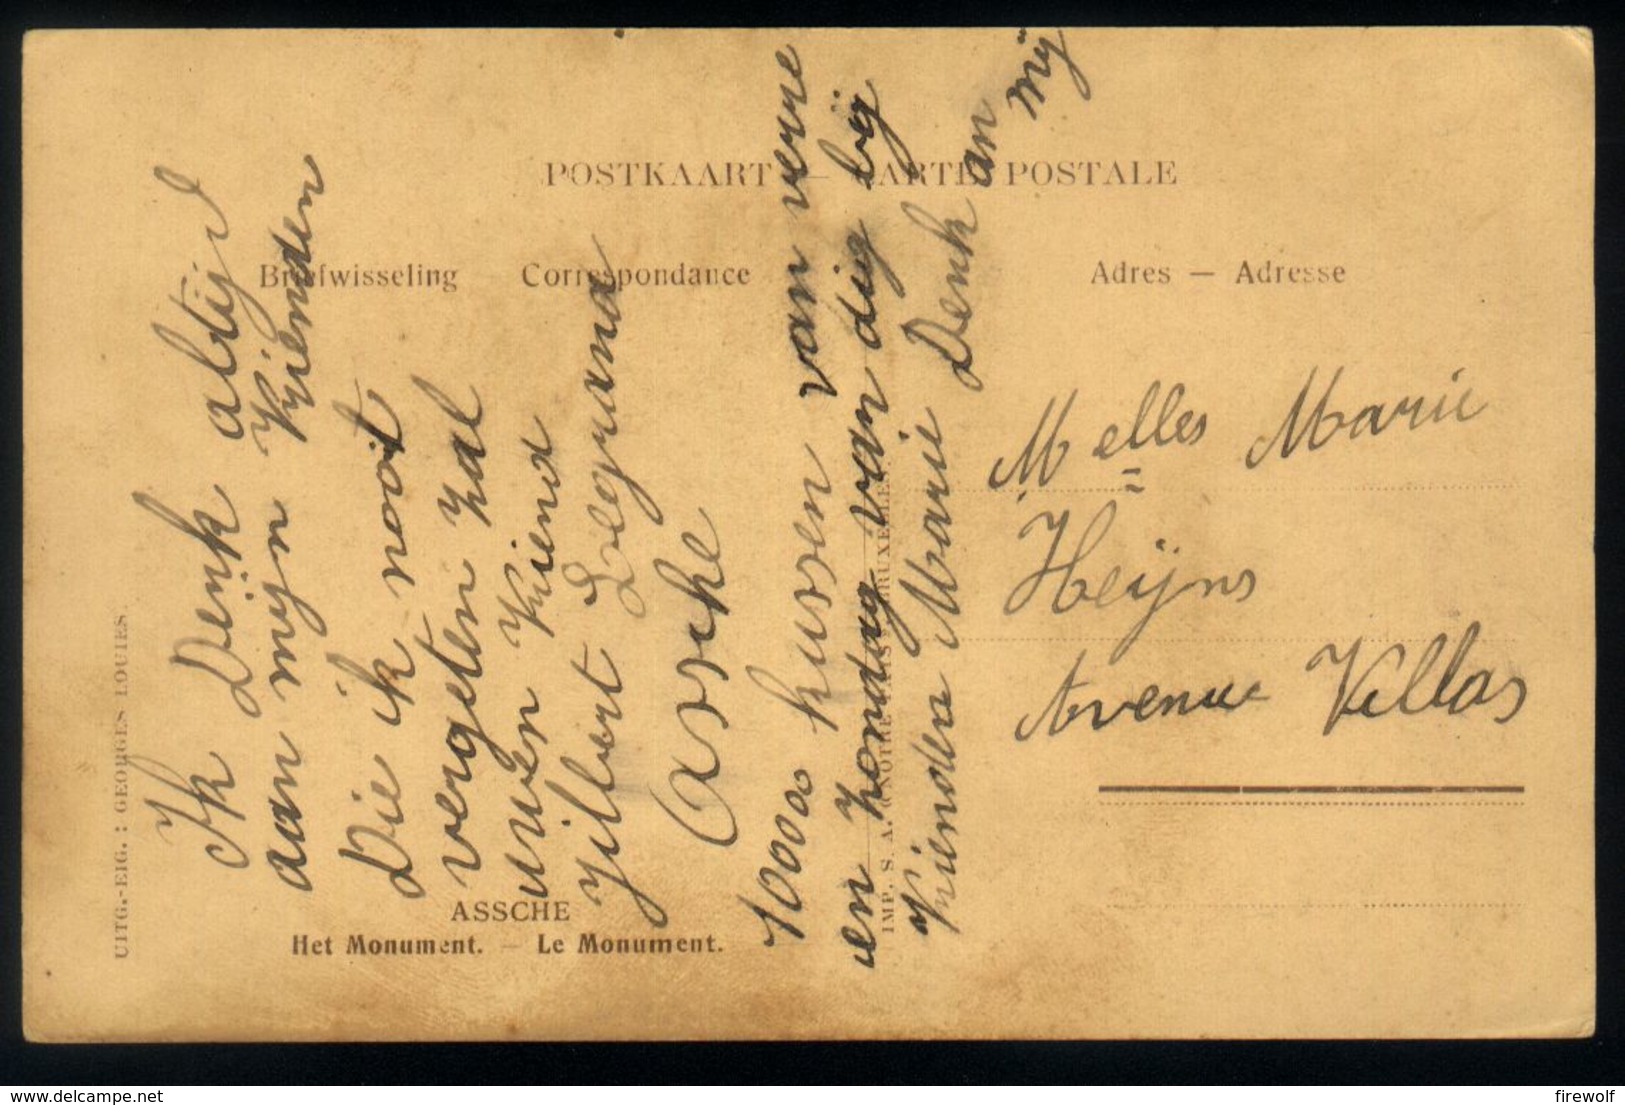 POSTKAART — CARTE POSTALE
Briefwisseling — Correspondance
Adres — Adresse
Ik Denk altijd
aan mijn Vrienden
Die ik nooit
vergeten zal
uwen Vriend
Jilbert Legrand
Assche
10000 kussen van verre
en zondag van dig bij
Marie Denk an mij
Melles Marie
Heÿns
Avenue Villas
ASSCHE
Het Monument. — Le Monument.
UITG.-EIG. : GEORGES LOUIES.
IMP. S. A. BRUXELLES.
delcampe.net
firewolf